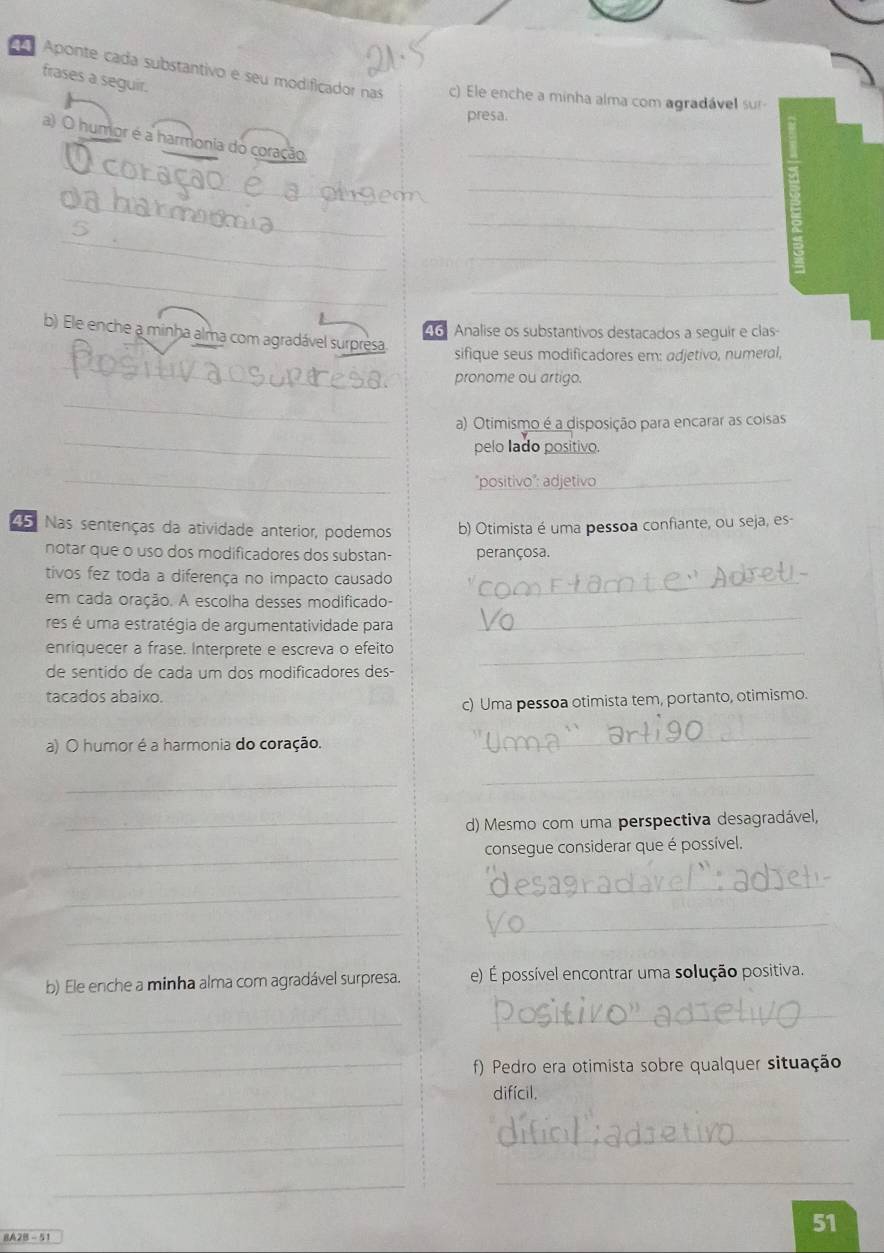 21.5
44 Aponte cada substantivo e seu modificador nas
frases a seguir.
a) O humor é a harmonia do coração.
O coração é a origem
da harmomia
s .
b) Ele enche a minha alma com agradável surpresa.
Positiva surpresa.
45 Nas sentenças da atividade anterior, podemos
notar que o uso dos modificadores dos substan-
tivos fez toda a diferença no impacto causado
em cada oração. A escolha desses modificado-
res é uma estratégia de argumentatividade para
enriquecer a frase. Interprete e escreva o efeito
de sentido de cada um dos modificadores des-
tacados abaixo.
a) O humor é a harmonia do coração.
b) Ele enche a minha alma com agradável surpresa.
c) Ele enche a minha alma com agradável sur-
presa.
46 Analise os substantivos destacados a seguir e clas-
sifique seus modificadores em: adjetivo, numeral,
pronome ou artigo.
a) Otimismo é a disposição para encarar as coisas
pelo lado positivo.
"positivo": adjetivo
b) Otimista é uma pessoa confiante, ou seja, es-
perançosa.
"comfiamte" Adjeti-
vo
c) Uma pessoa otimista tem, portanto, otimismo.
"Uma" artigo
d) Mesmo com uma perspectiva desagradável,
consegue considerar que é possível.
"desagradavel": adjeti-
vo
e) É possível encontrar uma solução positiva.
Positivo" adjetivo
f) Pedro era otimista sobre qualquer situação
difícil.
"difícil": adjetivo
LÍNGUA PORTUGUESA
8A2B - 51
51